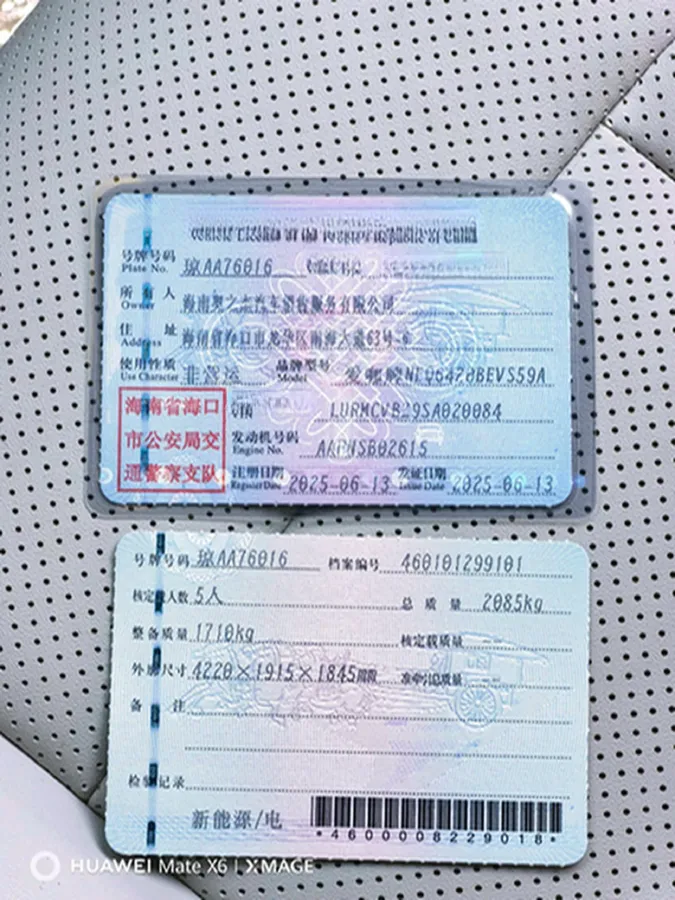 号牌号码 琼AA76016
Plate No.
所有人
Owner
住址 海南省海口市龙华区南海大道63号-6
Address
使用性质 非营运 品牌型号
Use Character Model
海南省海口
市公安局交
通警察支队
发动机号码
Engine No.
注册日期 2025-06-13 发证日期 2025-06-13
Register Date Issue Date
号牌号码 琼AA76016 档案编号 460101299101
核定载人数 5人 总质量 2085kg
整备质量 1710kg 核定载质量
外廓尺寸 4220×1915×1845mm 准牵引总质量
备注
检验记录
新能源/电
*4600008229018*
HUAWEI Mate X6 | XMAGE